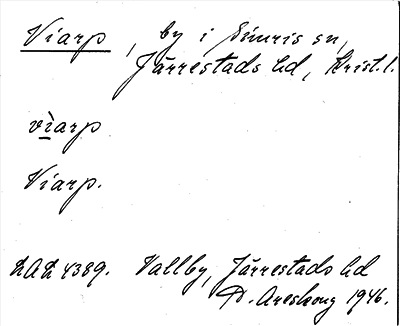 Viarp, by i Simris sn,
Järrestads hd, Krist. l.
vìarp
Viarp.
LAL 4389. Vallby, Järrestads hd
D. Areskoug 1946.